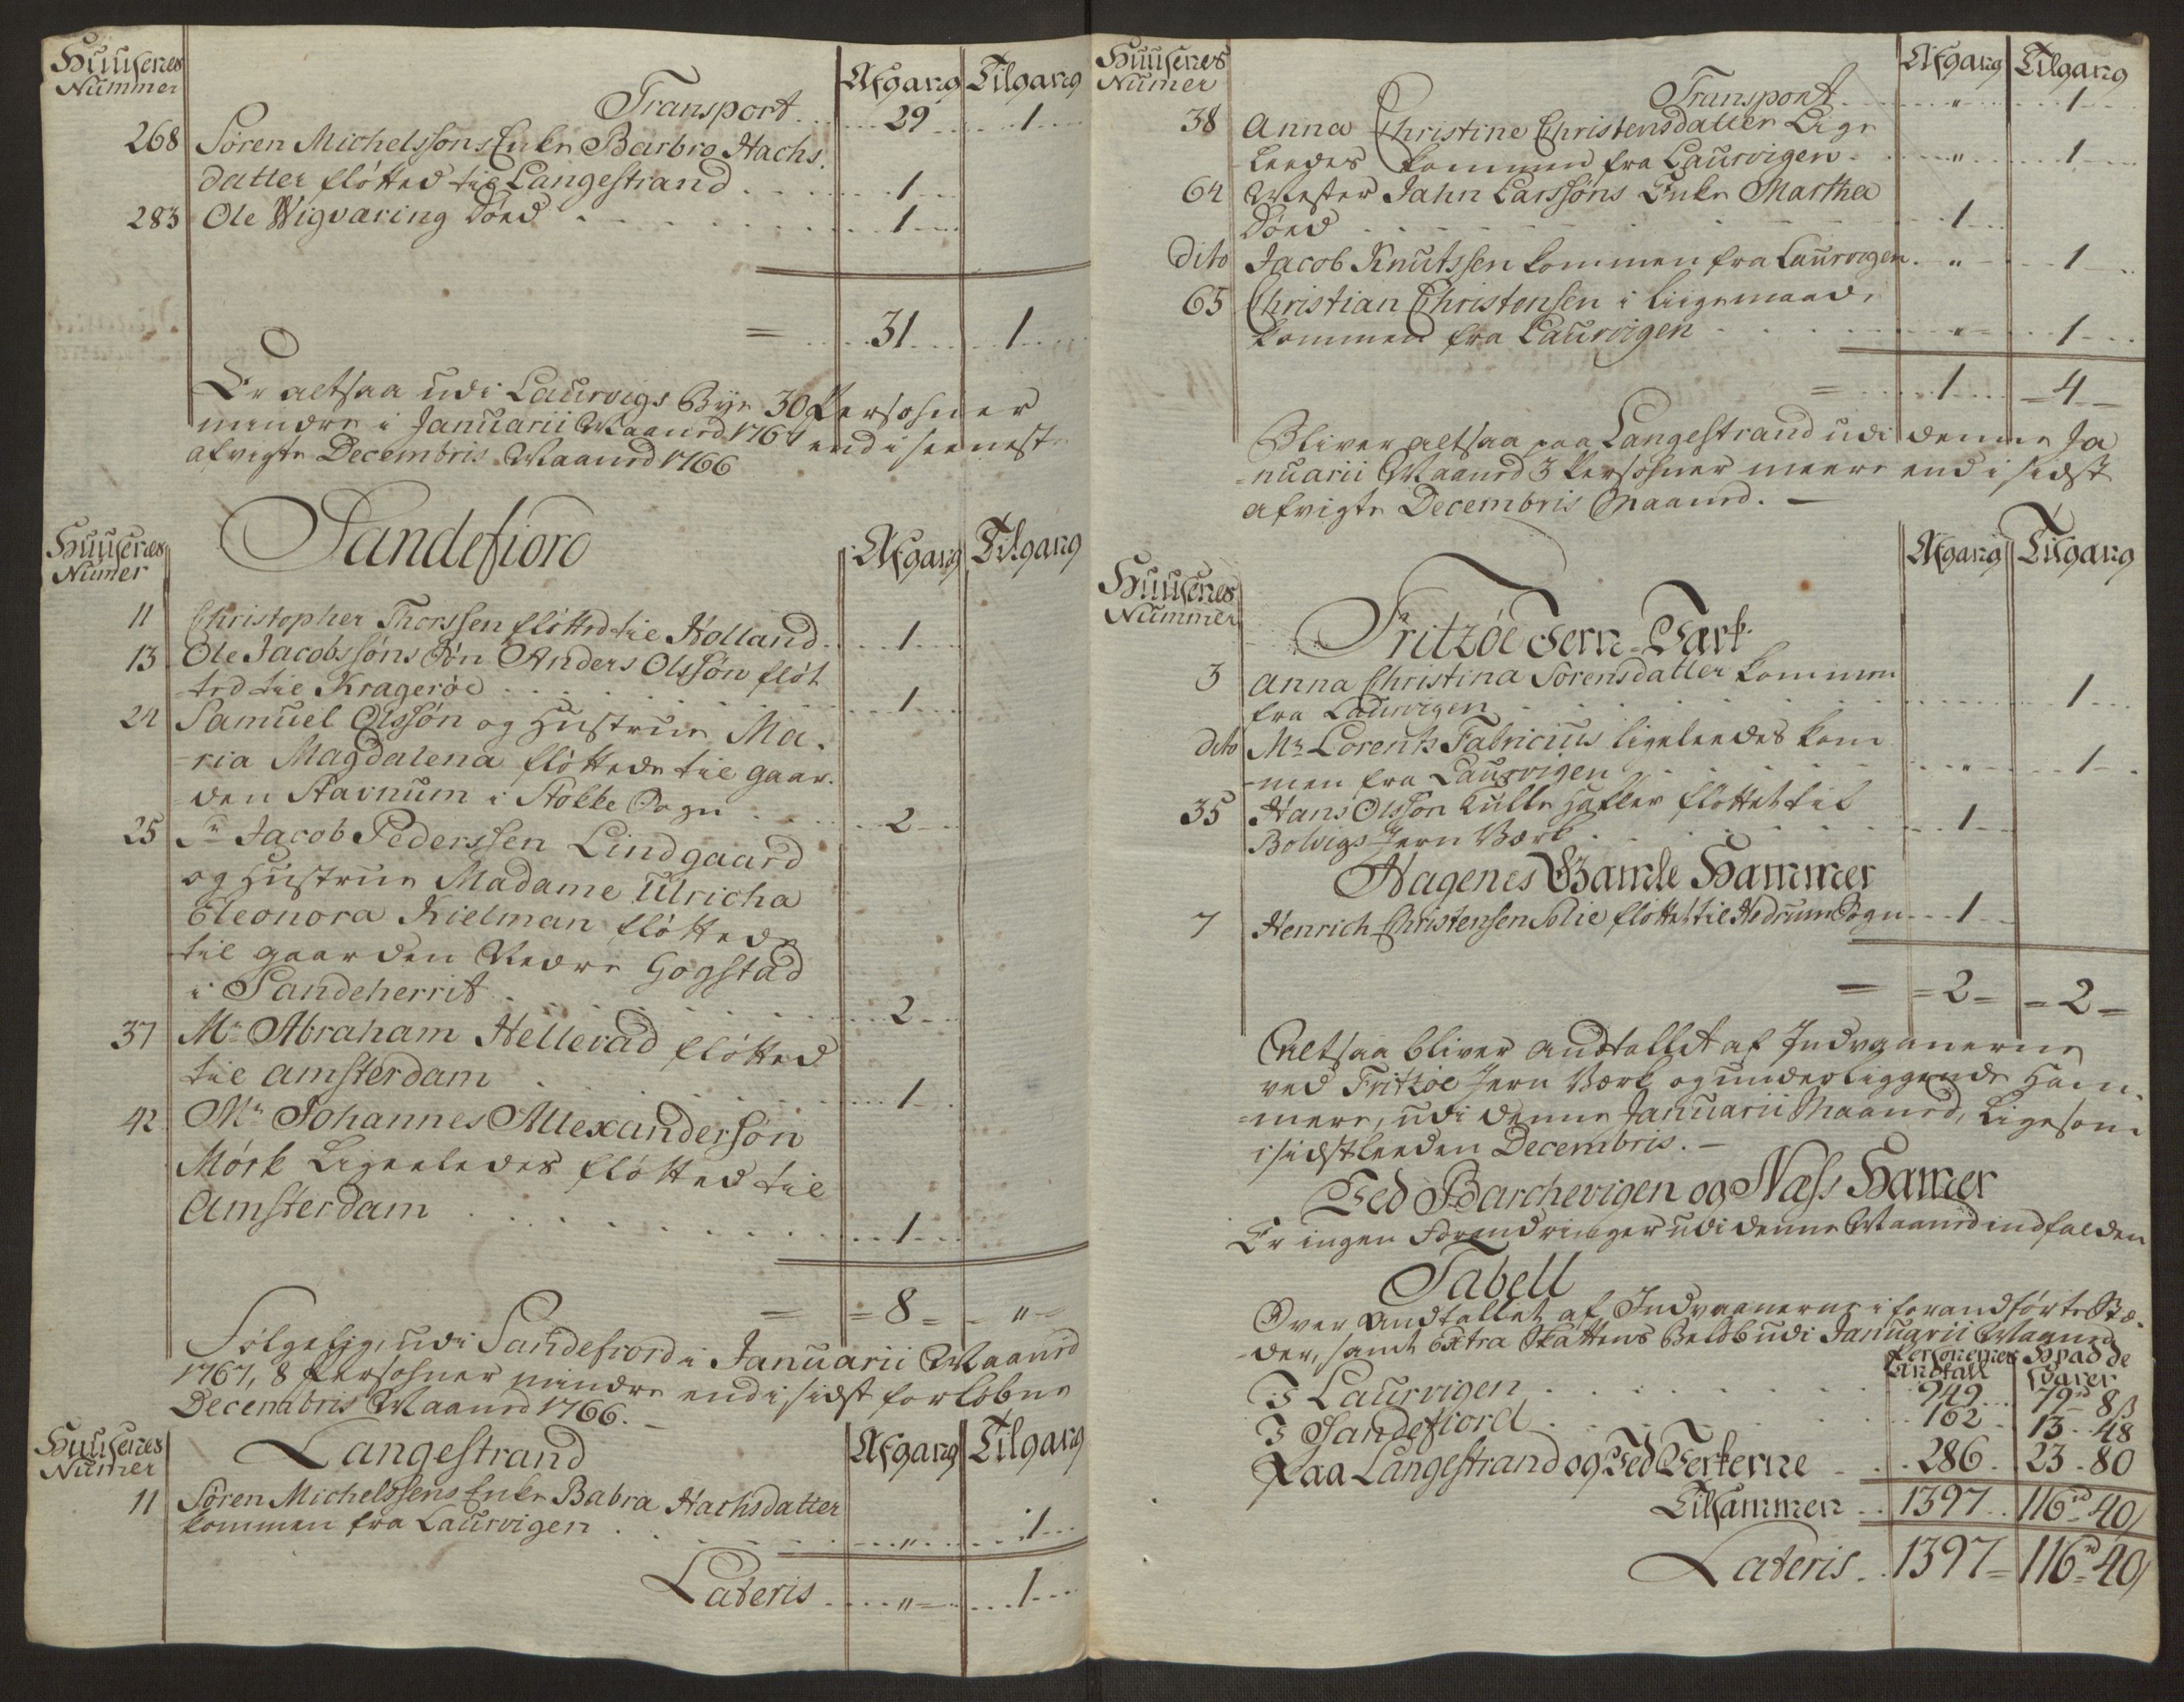 Huusenes
Nummer
Afgang Tilgang
Transport 29 1
268 Søren Michelssøns Enke Barbro Hachs
datter fløtted til Langestrand 1
283 Ole Wigværing Døed 1
= 31 1
Er altsaa udi Laurvigs Bye 30 Persohner
mindre i Januarii Maaned 1767 end i seeneste
afvigte Decembris Maaned 1766
Sandefiord
Huusenes
Numer
Afgang Tilgang
11 Christopher Thorssen fløtted til Holland 1
13 Ole Jacobssøns Søn Anders Olssøn fløt
ted til Kragerøe 1
24 Samuel Olssøn og Hustrue Ma-
ria Magdalena fløttede til gaar-
den Stavnum i Stokke Sogn 2
25 Sr Jacob Pederssen Lindgaard
og Hustrue Madame Ulricha
Eleonora Kielman fløttede
til gaarden Nedre Gogstad
i Sandeherrit 2
37 Mr Abraham Hellevad fløtted
til Amsterdam 1
42 Mr Johannes Allexanderssøn
Mørk Ligeeledes fløtted til
Amsterdam 1
= 8 "
Følgelig, udi Sandefiord i Januarii Maaned
1767, 8 Persohner mindre end i sidst forløbne
Decembris Maaned 1766.
Huusenes
Numer
Langestrand
Afgang Tilgang
11 Søren Michelssens Enke Babra Hachsdatter
kommen fra Laurvigen " 1
Lateris " 1
Huusenes
Numer
Afgang Tilgang
Transport " 1
38 Anna Christine Christensdatter Lige
leedes kommen fra Laurvigen " 1
64 Mester Jahn Larssøns Enke Martha
Døed 1
dito Jacob Knutssen kommen fra Laurvigen " 1
65 Christian Christensen i liigemaade
kommen fra Laurvigen " 1
= 1 4
Bliver altsaa paa Langestrand udi denne Ja
nuarii Maaned 3 Persohner meere end i sidst
afvigte Decembris Maaned.
Huusenes
Nummer
Afgang Tilgang
Fritzøe Jern-Værk
3 Anna Christina Sørensdatter kommen
fra Laurvigen 1
dito Mr Lorentz Fabricius ligeleedes kom
men fra Laurvigen " 1
35 Hans Olssøn Kulle Hafler fløttet til
Bolvigs Jern Værk 1
Hagenes Gamle Hammer
7 Henrich Christensen Solie fløttet til Hedrum Sogn 1
= 2 = 2
Altsaa bliver Andtallet af Indvaanerne
ved Fritzøe Jern Værk og underliggende Ham-
mere, udi denne Januarii Maaned, Ligesom
i sidstleeden Decembris.
Ved Barchevigen og Næss Hamer
Er ingen Forandringer udi denne Maaned indfalden
Tabell
Over Andtallet af Indvaanerne i forandførte Stæ-
der, samt Extra Skattens Beløb udi Januarii Maaned
Personernes Andtall Hvad de svarer
I Laurvigen 949 79rd 8ß
I Sandefiord 162 13 48
Paa Langestrand og Ved Verkerne 286 23 80
Tilsammen 1397 116rd 40
Lateris 1397 116rd 40